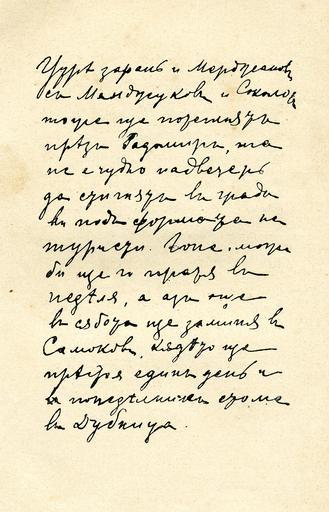 Утрѣ зарань и Мерджанов
съ Манджукова и Соколов
тоже ще потеглятъ
прѣзъ Радомиръ, та
не е чудно надвечерь
да стигнатъ въ града
ви подъ формата на
туристи. Гоце, може
би ще го пратя въ
недѣля, а азъ още
въ сѫбота ще замина въ
Самоковъ, кѫдѣто ще
прѣстоя единъ день и
въ понедѣлникъ съмъ
въ Дубница.